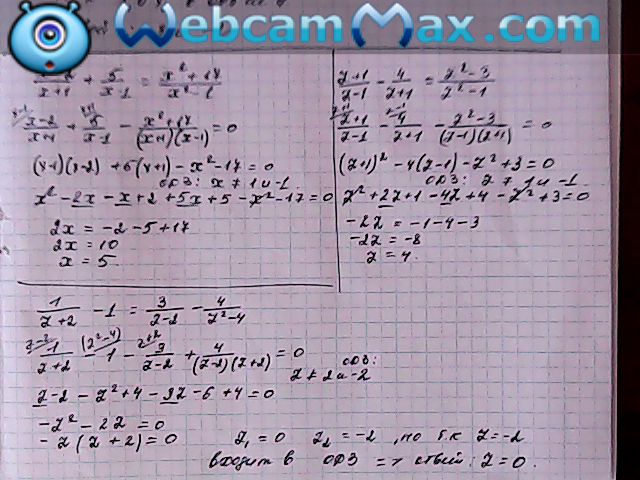 WebcamMax.com
(x-2)/(x+1) + 5/(x-1) = (x²+17)/(x²-1)
(x-2)/(x+1) + 5/(x-1) - (x²+17)/((x+1)(x-1)) = 0
(x-1)(x-2) + 5(x+1) - x² - 17 = 0
ОДЗ: x ≠ 1 и -1
x² - 2x - x + 2 + 5x + 5 - x² - 17 = 0
2x = -2 - 5 + 17
2x = 10
x = 5.
(z+1)/(z-1) - 4/(z+1) = (z²-3)/(z²-1)
(z+1)/(z-1) - 4/(z+1) - (z²-3)/((z-1)(z+1)) = 0
(z+1)² - 4(z-1) - z² + 3 = 0
ОДЗ: z ≠ 1 и -1.
z² + 2z + 1 - 4z + 4 - z² + 3 = 0
-2z = -1 - 4 - 3
-2z = -8
z = 4.
1/(z+2) - 1 = 3/(z-2) - 4/(z²-4)
1/(z+2) - 1 - 3/(z-2) + 4/((z-2)(z+2)) = 0
ОДЗ:
z ≠ 2 и -2
z - 2 - z² + 4 - 3z - 6 + 4 = 0
-z² - 2z = 0
-z(z+2) = 0 z₁ = 0 z₂ = -2 , но т.к z = -2
входит в ОДЗ => ответ: z = 0.